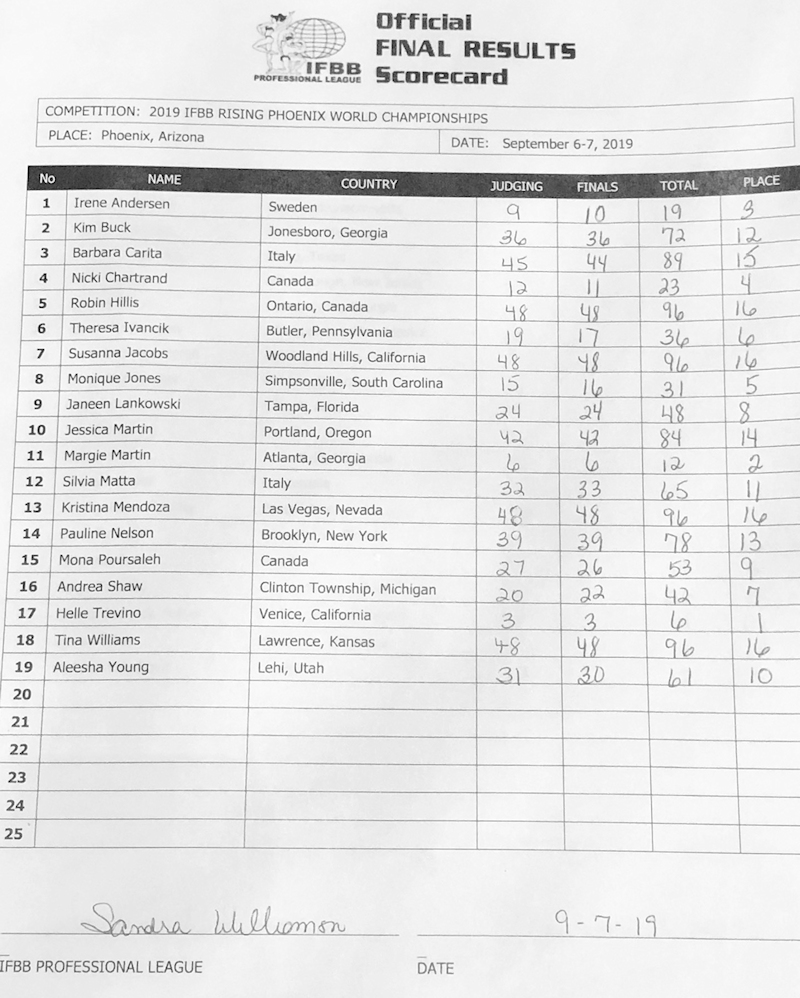 Official
FINAL RESULTS
Scorecard
IFBB
PROFESSIONAL LEAGUE
COMPETITION: 2019 IFBB RISING PHOENIX WORLD CHAMPIONSHIPS
PLACE: Phoenix, Arizona DATE: September 6-7, 2019
No NAME COUNTRY JUDGING FINALS TOTAL PLACE
1 Irene Andersen Sweden 9 10 19 3
2 Kim Buck Jonesboro, Georgia 36 36 72 12
3 Barbara Carita Italy 45 44 89 15
4 Nicki Chartrand Canada 12 11 23 4
5 Robin Hillis Ontario, Canada 48 48 96 16
6 Theresa Ivancik Butler, Pennsylvania 19 17 36 6
7 Susanna Jacobs Woodland Hills, California 48 48 96 16
8 Monique Jones Simpsonville, South Carolina 15 16 31 5
9 Janeen Lankowski Tampa, Florida 24 24 48 8
10 Jessica Martin Portland, Oregon 42 42 84 14
11 Margie Martin Atlanta, Georgia 6 6 12 2
12 Silvia Matta Italy 32 33 65 11
13 Kristina Mendoza Las Vegas, Nevada 48 48 96 16
14 Pauline Nelson Brooklyn, New York 39 39 78 13
15 Mona Poursaleh Canada 27 26 53 9
16 Andrea Shaw Clinton Township, Michigan 20 22 42 7
17 Helle Trevino Venice, California 3 3 6 1
18 Tina Williams Lawrence, Kansas 48 48 96 16
19 Aleesha Young Lehi, Utah 31 30 61 10
20
21
22
23
24
25
Sandra Williamson 9-7-19
IFBB PROFESSIONAL LEAGUE DATE